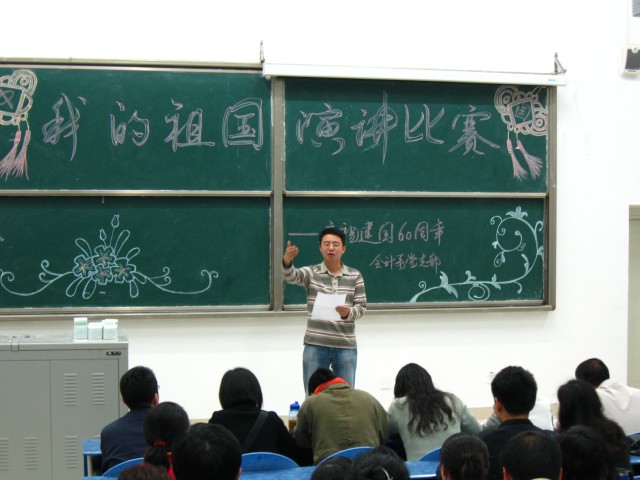 我的祖国 演讲比赛
——庆祝建国60周年
会计系党支部